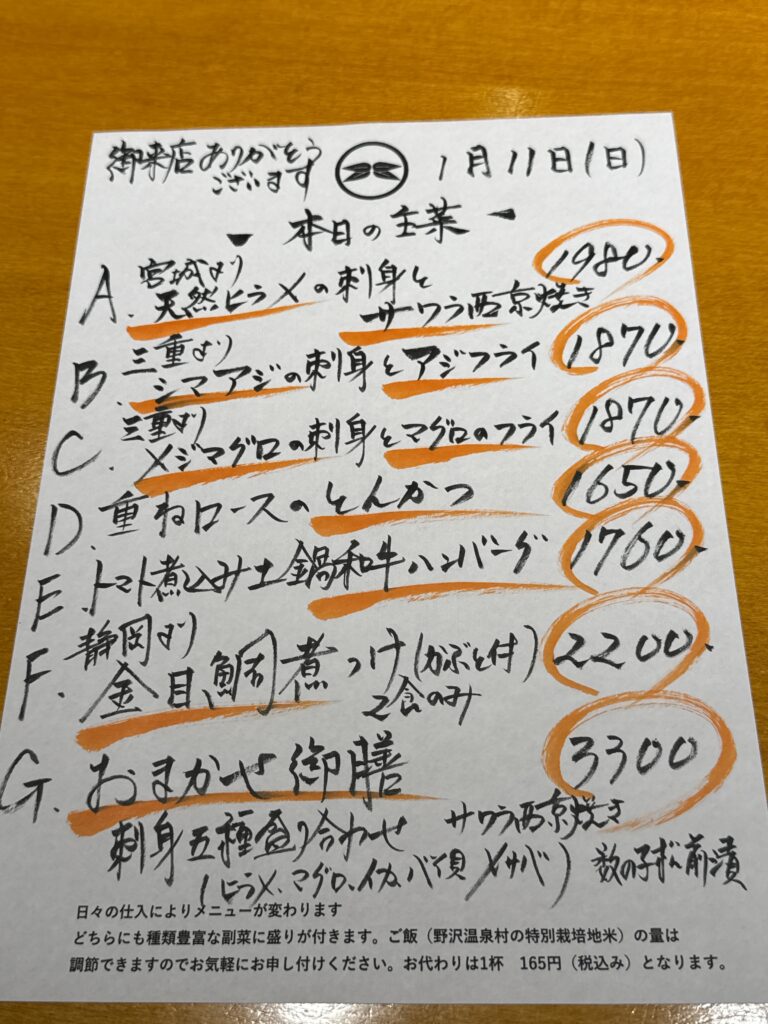 御来店ありがとう
ございます
1月11日(日)
本日の主菜
A. 宮城より
天然ヒラメの刺身と
サワラ西京焼き
1980-
B. 三重より
シマアジの刺身とアジフライ
1870-
C. 三重より
メジマグロの刺身とマグロのフライ
1870-
D. 重ねロースのとんかつ
1650-
E. トマト煮込み土鍋和牛ハンバーグ
1760-
F. 静岡より
金目鯛煮つけ(かぶと付)
2食のみ
2200-
G. おまかせ御膳
3300
刺身五種盛り合わせ
サワラ西京焼き
(ヒラメ、マグロ、イカ、バイ貝 〆サバ)
数の子松前漬
日々の仕入によりメニューが変わります
どちらにも種類豊富な副菜に盛りが付きます。ご飯(野沢温泉村の特別栽培地米)の量は
調節できますのでお気軽にお申し付けください。お代わりは1杯 165円(税込み)となります。